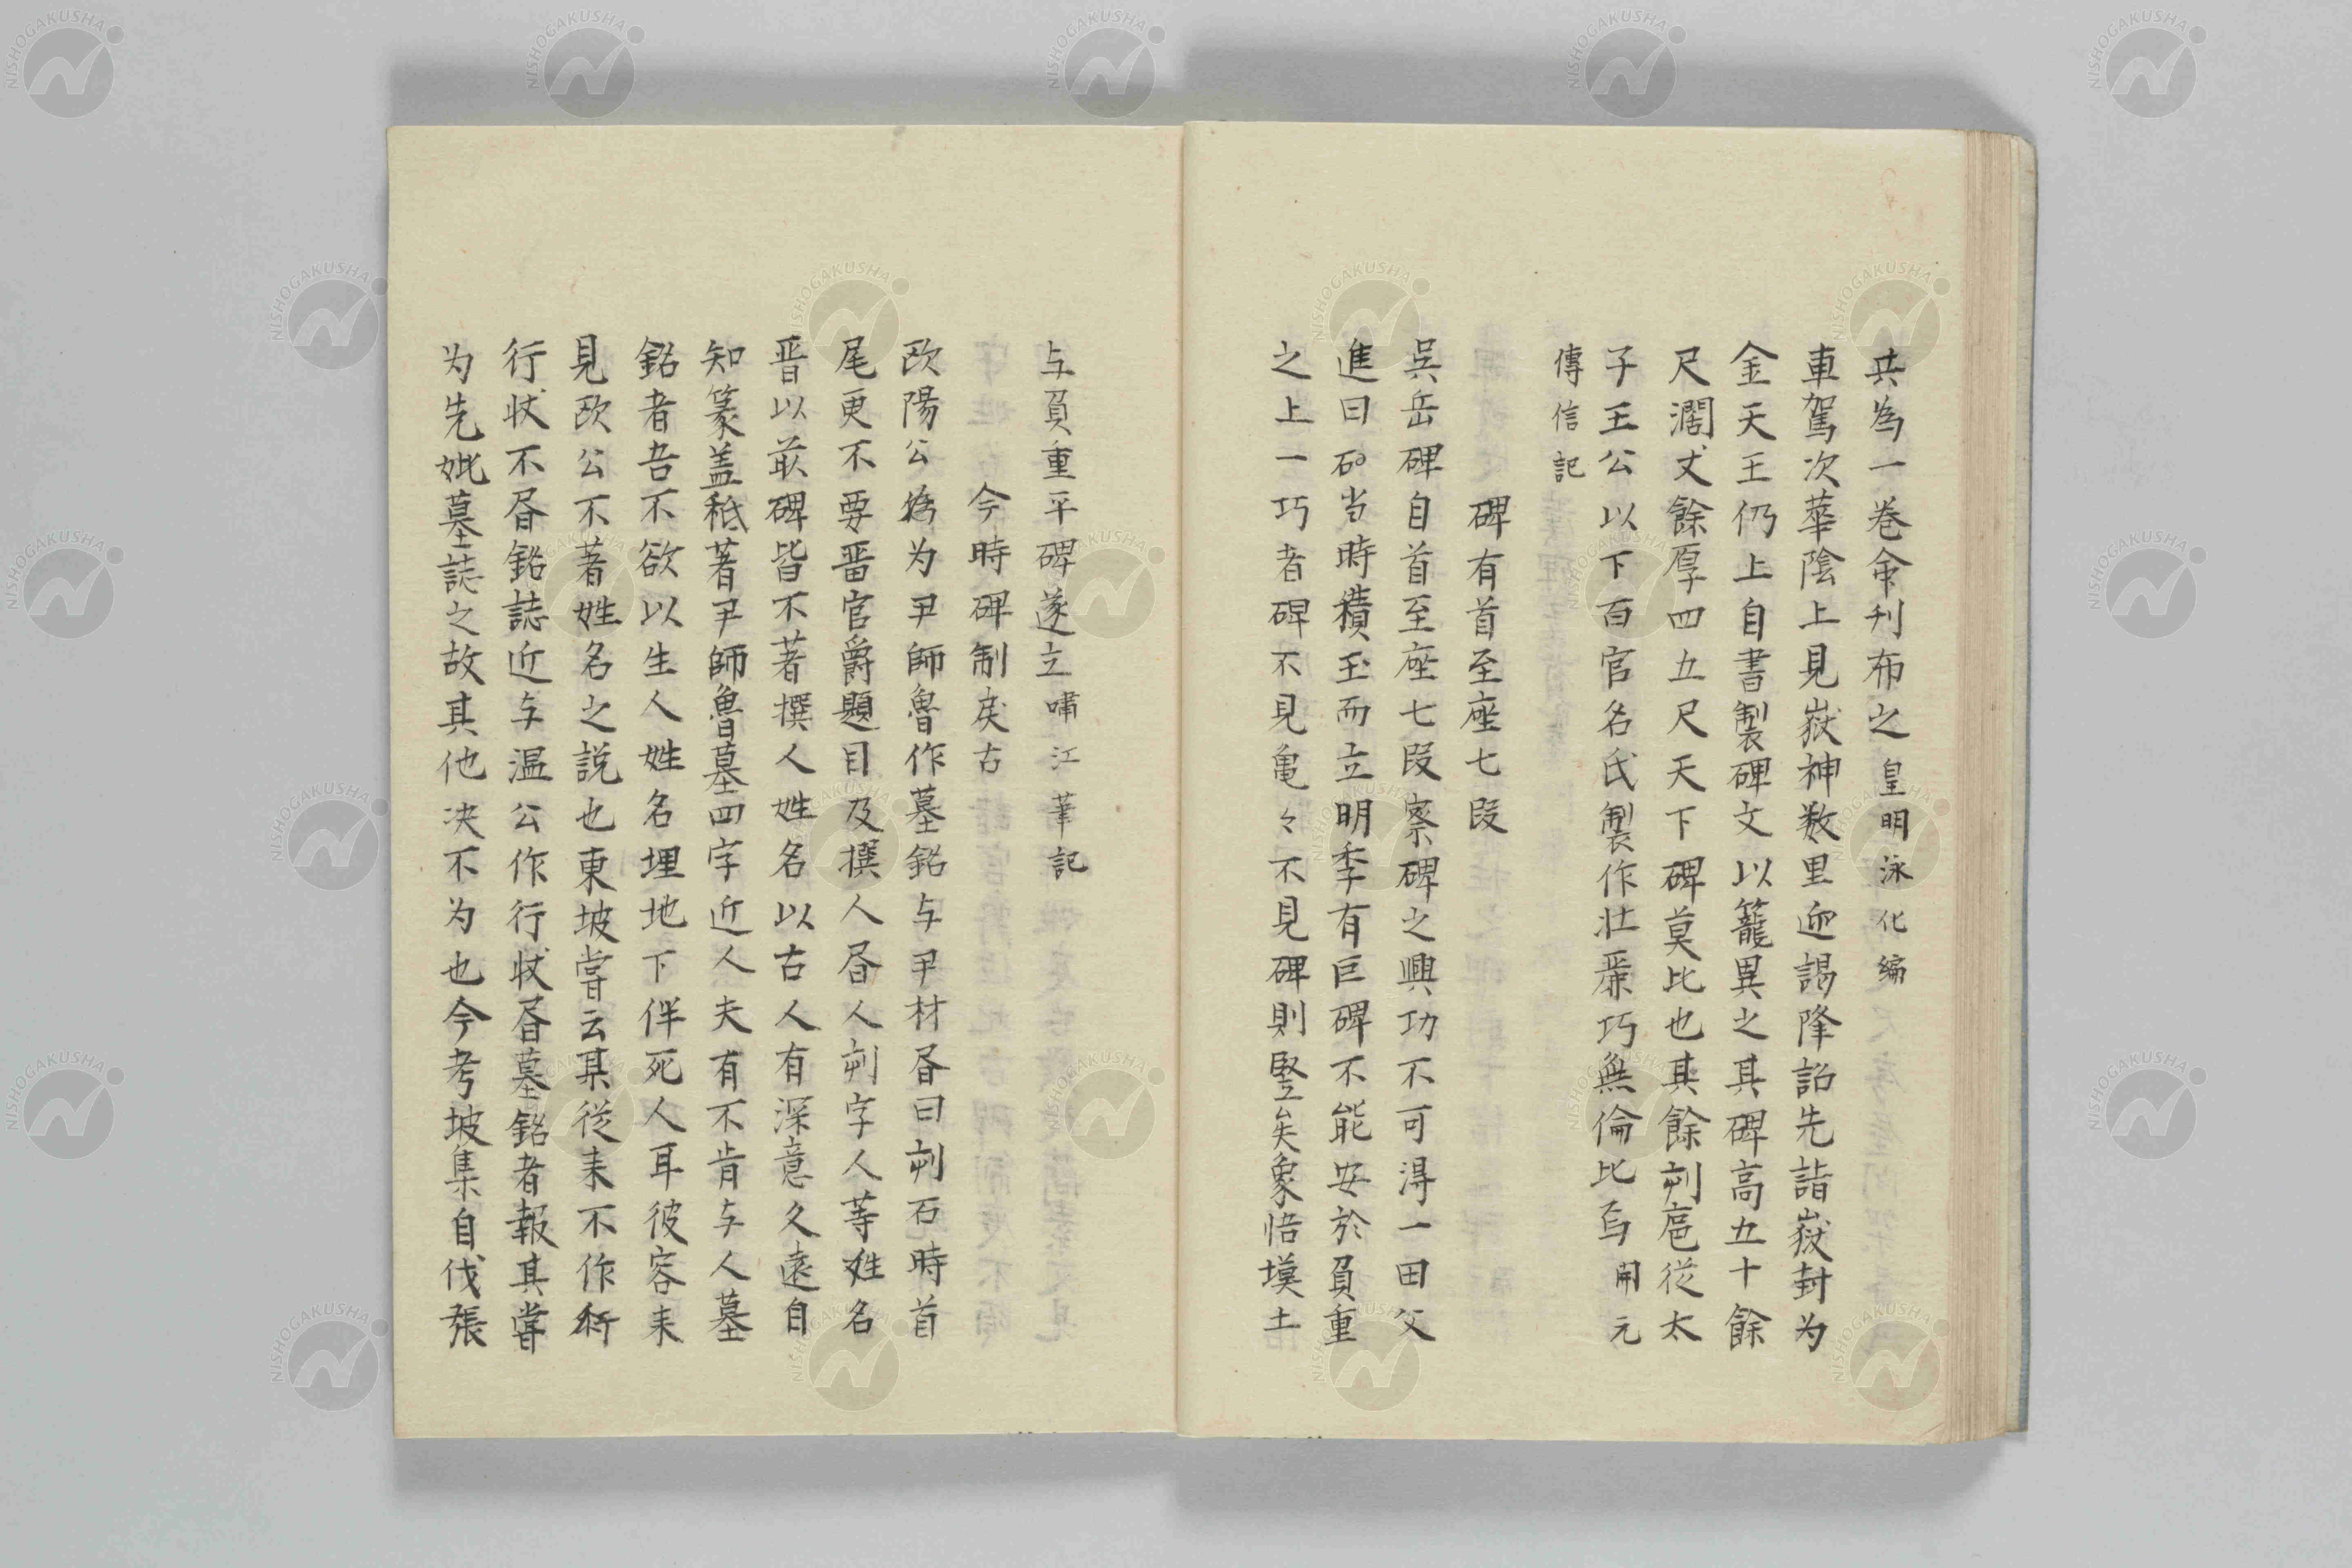 共為一卷命刊布之皇明泳化編
車駕次華陰上見嶽神数里迎謁降詔先詣嶽封为
金天王仍上自書製碑文以寵異之其碑高五十餘
尺濶丈餘厚四五尺天下碑莫比也其餘刻扈従太
子王公以下百官名氏製作壮麗巧無倫比焉開元
傳信記
碑有首至座七段
吳岳碑自首至座七段察碑之興功不可淂一田父
進曰当時積玉而立明季有巨碑不能安於負重
之上一巧者碑不見亀々不見碑則竪矣象悟塻土
与負重平碑遂立嘯江筆記
今時碑制戾古
欧陽公為为尹師魯作墓銘与尹材昏曰刻石時首
尾更不要晋官爵題目及撰人昏人刻字人等姓名
晋以前碑皆不著撰人姓名以古人有深意久遠自
知篆盖秪著尹師魯墓四字近人夫有不肯与人墓
銘者吾不欲以生人姓名埋地下伴死人耳彼容未
見欧公不著姓名之説也東坡嘗云某従来不作
行状不昏銘誌近与温公作行状昏墓銘者報其嘗
为先妣墓誌之故其他决不为也今考坡集自伐張